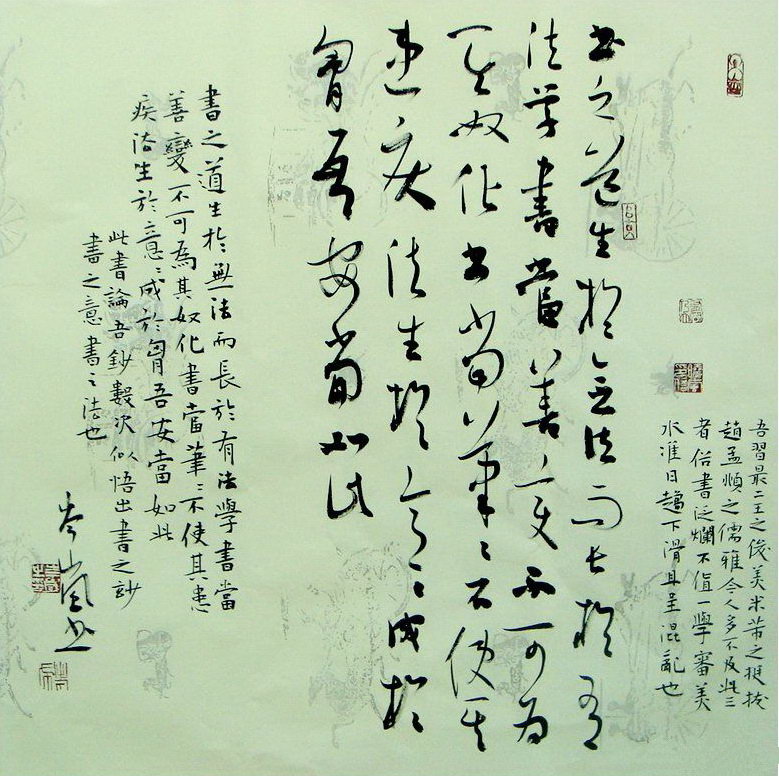 吾習最二王之俊美米芾之挺拔
趙孟頫之儒雅今人多不及此三
者俗書泛爛不值一學審美
水准日趨下滑且呈混亂也
书之道生於无法而长於有
法学書當善变不可为
其奴化书當筆〻不使其
患疾法生於意〻成於
胷吾安當如此
書之道生於無法而長於有法學書當
善變不可為其奴化書當筆〻不使其患
疾法生於意〻成於胷吾安當如此
此書論吾鈔數次似悟出書之玅
書之意書之法也
岑嵐书